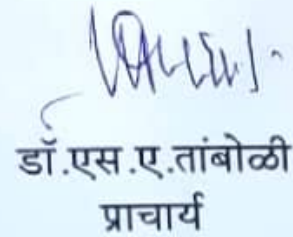 डॉ.एस.ए.तांबोळी
प्राचार्य